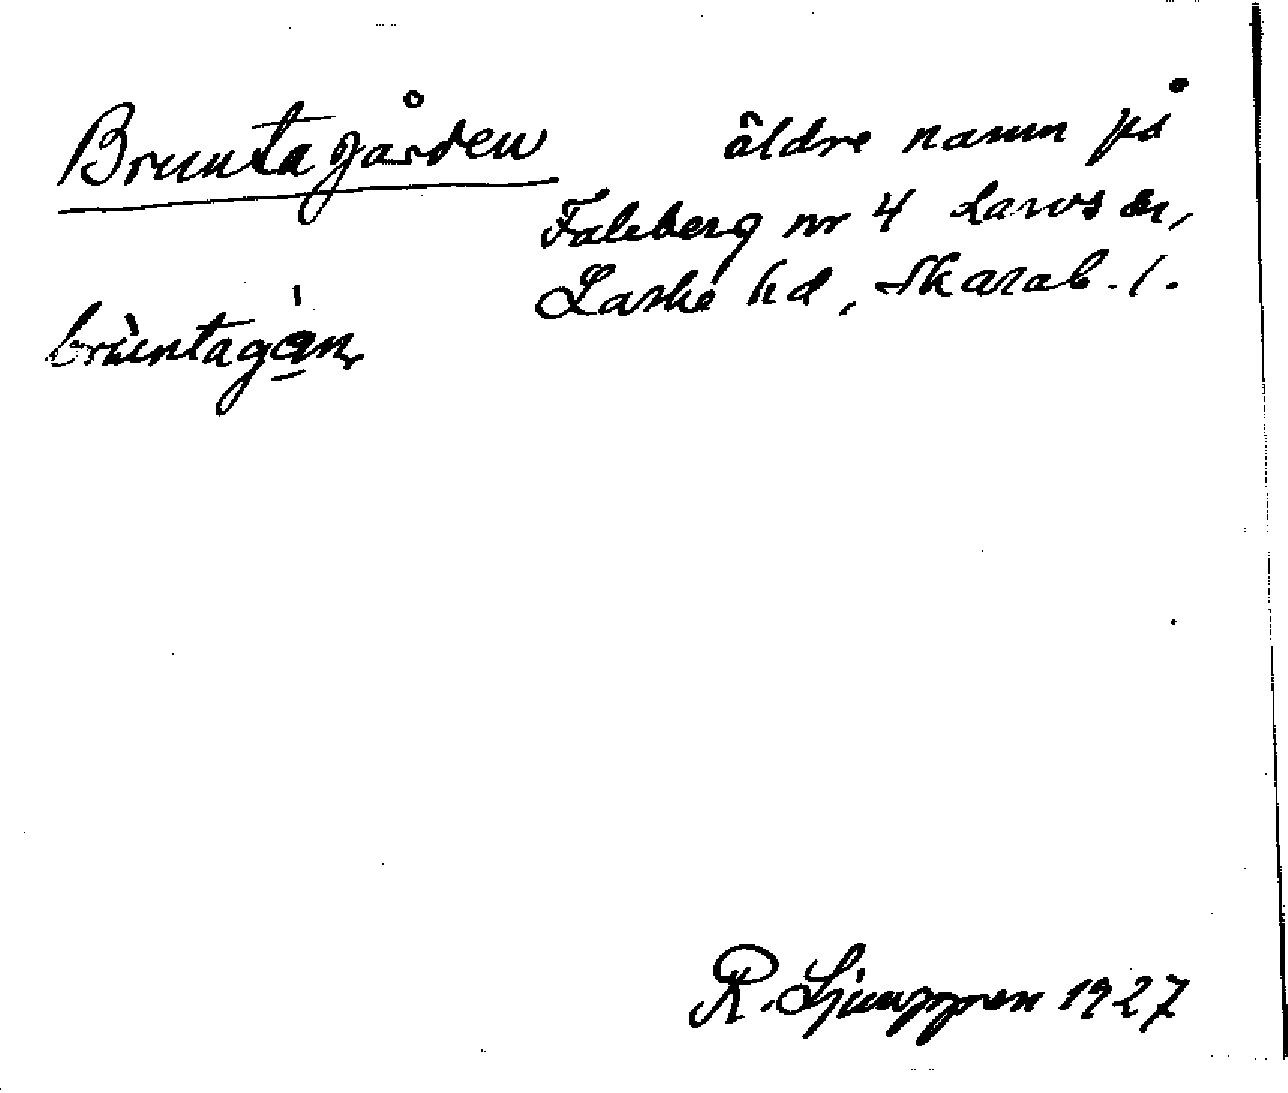 Bruntagården äldre namn på
Faleberg nr 4 Larvs sn,
Laske hd, Skarab. l.
brùntagán
R. Ljunggren 1927